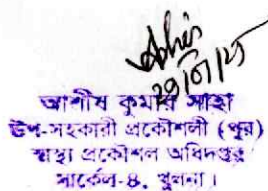 ২৯/০১/২৫
আশীষ কুমার সাহা
উপ-সহকারী প্রকৌশলী (পুর)
স্বাস্থ্য প্রকৌশল অধিদপ্তর
সার্কেল-৪, খুলনা।